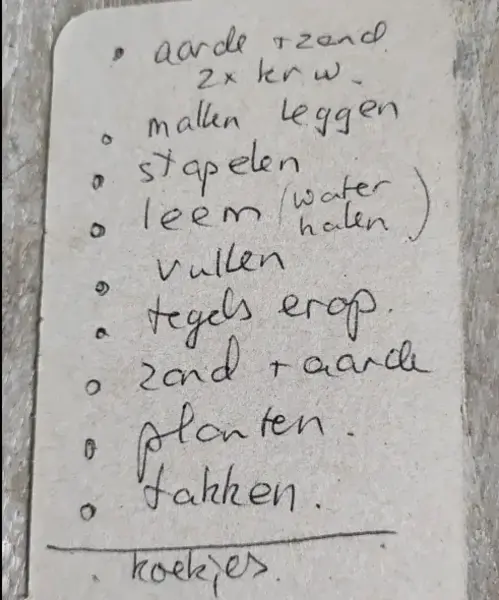 • aarde + zand
2x krw.
• mallen leggen
• stapelen
• leem (water
halen)
• vullen
• tegels erop.
• zand + aarde
• planten.
• takken.
. koekjes.